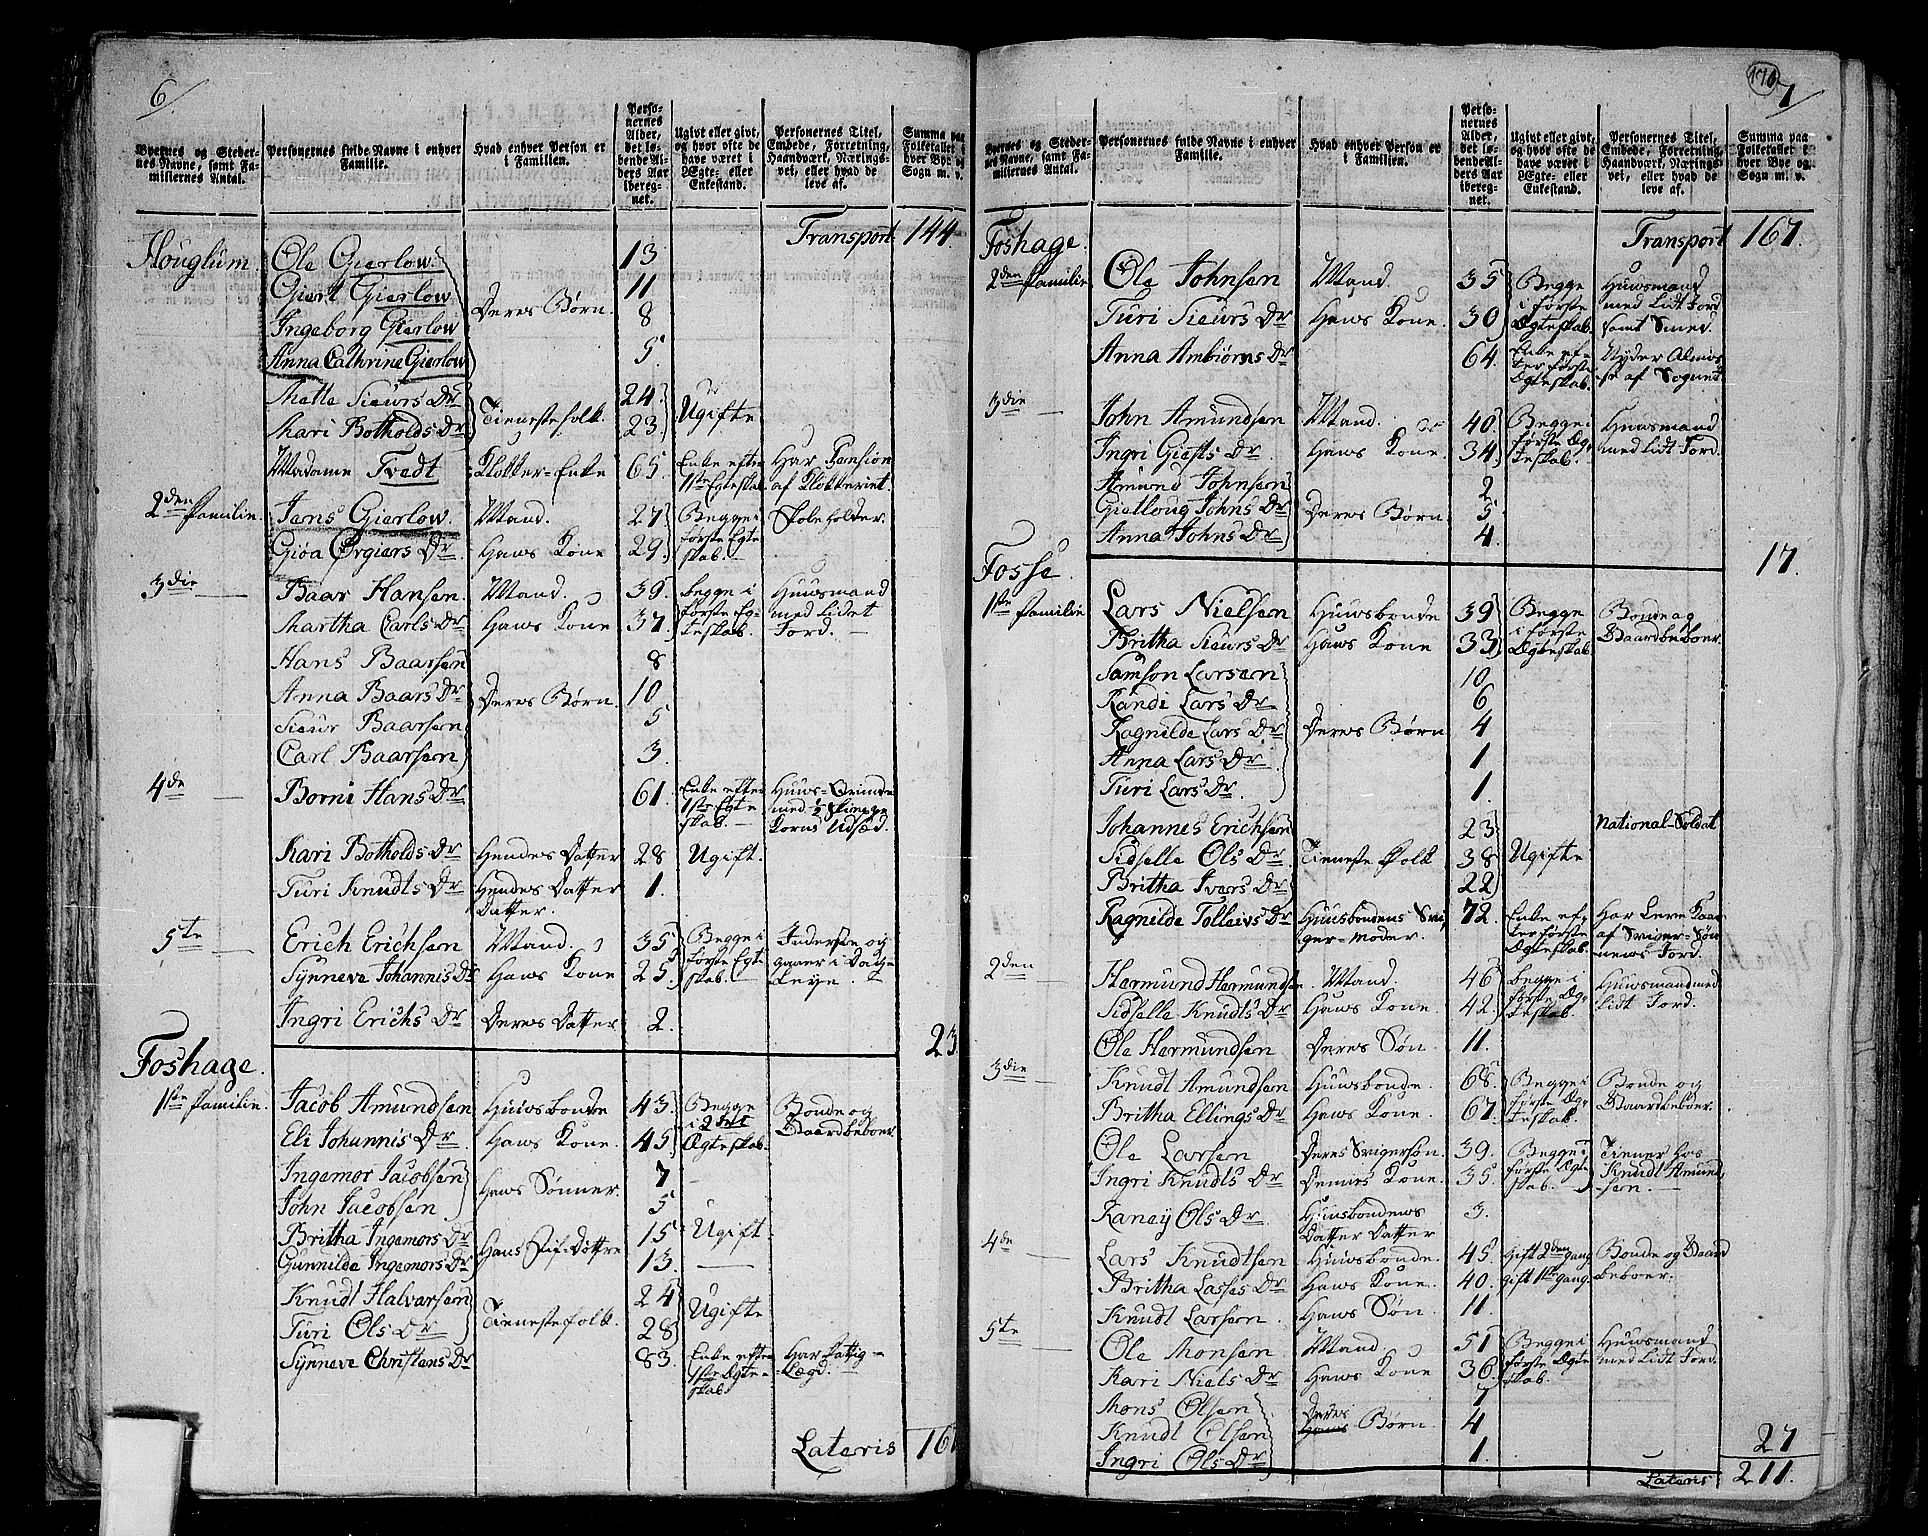 6/
Byernes og Stedernes Navne, samt Familiernes Antal. | Personernes fulde Navne i enhver Familie. | Hvad enhver Person er i Familien. | Personernes Alder, det løbende Alders Aar iberegnet. | Ugivt eller givt, og hvor ofte de have været i Ægte- eller Enkestand. | Personernes Titel, Embede, Forretning, Haandværk, Næringsvei, eller hvad de leve af. | Summa paa Folketallet i hver Bye og Sogn m. v.
Transport 144
Houglum. Ole Gierlow. 13
Giert Gierlow 11
Deres Børn.
Ingeborg Gierlow 8
Anna Cathrine Gierlow 5.
Mette Sieurs Dr 24.
Tienestefolk. Ugifte
Mari Botholds Dr 23.
Madame Tvedt Klokker-Enke 65. Enke efter 1ste Egteskab. Har Pension af Klokkeriet.
2den Familie. Jens Gierlow. Mand. 27 Begge i første Egteskab. Skoleholder.
Gjøa Ørgiers Dr Hans Kone 29.
3die Baar Hansen. Mand. 39. begge i første Egteskab. Huusmand med lidet Jord.
Martha Carls Dr Hans Kone 37.
Hans Baarsen 8
Anna Baars Dr Deres Børn. 10
Sieur Baarsen 5
Carl Baarsen 3.
4de Borni Hans Dr 61. Enke efter 1ste Egteskab. Huus-Qvinde med 1/2 Korns Udsæd.
Kari Botholds Dr Hendes Datter 28 Ugift.
Turi Knudts Dr Hendes Datter Datter. 1.
5te Erich Erichsen Mand. 35 Begge i første Egteskab. Inderste og gaaer i Dagleye.
Synneve Johannis Dr Hans Kone 25
Ingri Erichs Dr Deres Datter 2.
23.
Foshage.
1ste Familie. Jacob Amundsen Huusbonde 43. Begge i 2det Ægteskab. Bonde og Gaardbeboer.
Eli Johannis Dr Hans Kone. 45
Ingemor Jacobsen 7
Hans Sønner.
John Jacobsen 5
Britha Ingemors Dr 15 Ugift.
Hans Stif-Døttre
Gunnilde Ingemors Dr 13.
Knudt Halvarsen 24
Tienestefolk. Ugifte
Turi Ols Dr 28
Synneve Christens Dr 83. Enke efter 1ste Ægteskab Har Fattig-Lægd.
Lateris 167
176
7/
Byernes og Stedernes Navne, samt Familiernes Antal. | Personernes fulde Navne i enhver Familie. | Hvad enhver Person er i Familien. | Personernes Alder, det løbende Alders Aar iberegnet. | Ugivt eller givt, og hvor ofte de have været i Ægte- eller Enkestand. | Personernes Titel, Embede, Forretning, Haandværk, Næringsvei, eller hvad de leve af. | Summa paa Folketallet i hver Bye og Sogn m. v.
Foshage. Transport 167.
2den Familie Ole Johnsen Mand. 35 Begge i første Ægteskab. Huusmand med lidt Jord samt Smed.
Turi Sieurs Dr Hans Kone. 30
Anna Ambiørns Dr 64. Enke efter første Ægteskab. Nyder Almisse af Sognet
3die John Amundsen Mand. 40. Begge i første Ægteskab. Huusmand med lidt Jord.
Ingri Giests Dr. Hans Kone. 34.
Amund Johnsen 2
Gietloug Johns Dr Deres Børn. 5
Anna Johns Dr 4.
17.
Fosse.
1ste Familie Lars Nielsen Huusbonde 39 Begge i første Ægteskab Bonde og Gaardbeboer.
Britha Sieurs Dr Hans Kone 33
Samson Larsen 10
Randi Lars Dr 6
Ragnilde Lars Dr Deres Børn 4
Anna Lars Dr 1
Turi Lars Dr. 1.
Johannes Erichsen 23 National-Soldat
Sidselle Ols Dr. Tieneste Folk 38 Ugifte
Britha Ivars Dr 22
Ragnilde Tolleivs Dr Huusbondens Sviger-Moder. 72. Enke efter første Ægteskab. Har Leve Kaar af Sviger-Sønnens Jord.
2den Hermund Hermundsen. Mand. 46 begge i første Ægteskab. Huusmand med lidt Jord.
Sidselle Knudts Dr Hans Kone. 42.
Ole Hermundsen Deres Søn. 11.
3die Knudt Amundsen Huusbonde. 68. Begge i første Ægteskab. Bonde og Gaardbeboer.
Britha Ellings Dr Hans Kone. 67.
Ole Larsen Deres Svigersøn. 39. Begge i første Ægteskab. Tiener hos Knudt Amundsen.
Ingri Knudts Dr Dennes Kone. 35.
Raney Ols Dr Huusbondens Datter Datter 3.
4de Lars Knudtsen Huusbonde. 45. Gift 2den gang Bonde og Gaardbeboer.
Britha Lasses Dr Hans Kone. 40. gift 1ste gang.
Knudt Larsen. Hans Søn. 11.
5te Ole Monsen Mand. 51 Begge i første Ægteskab. Huusmand med lidt Jord.
Kari Niels Dr Hans Kone 36.
Mons Olsen 7
Deres Børn.
Knudt Olsen 4
Ingri Ols Dr 1.
27
Lateris 211.